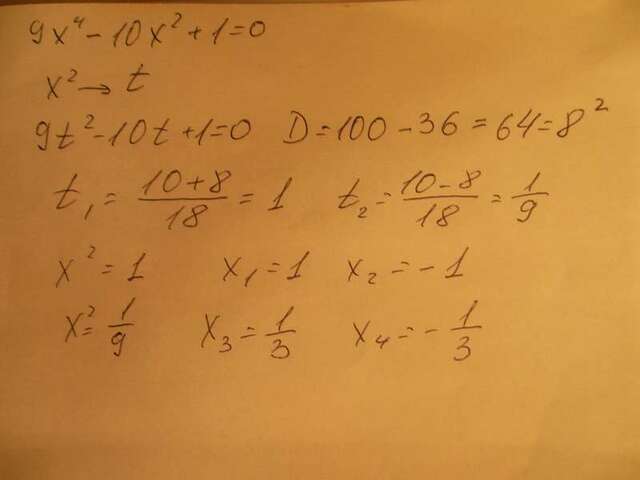 9x⁴-10x²+1=0
x²→t
9t²-10t+1=0 D=100-36=64=8²
t₁=(10+8)/18=1 t₂=(10-8)/18=1/9
x²=1 x₁=1 x₂=-1
x²=1/9 x₃=1/3 x₄=-1/3